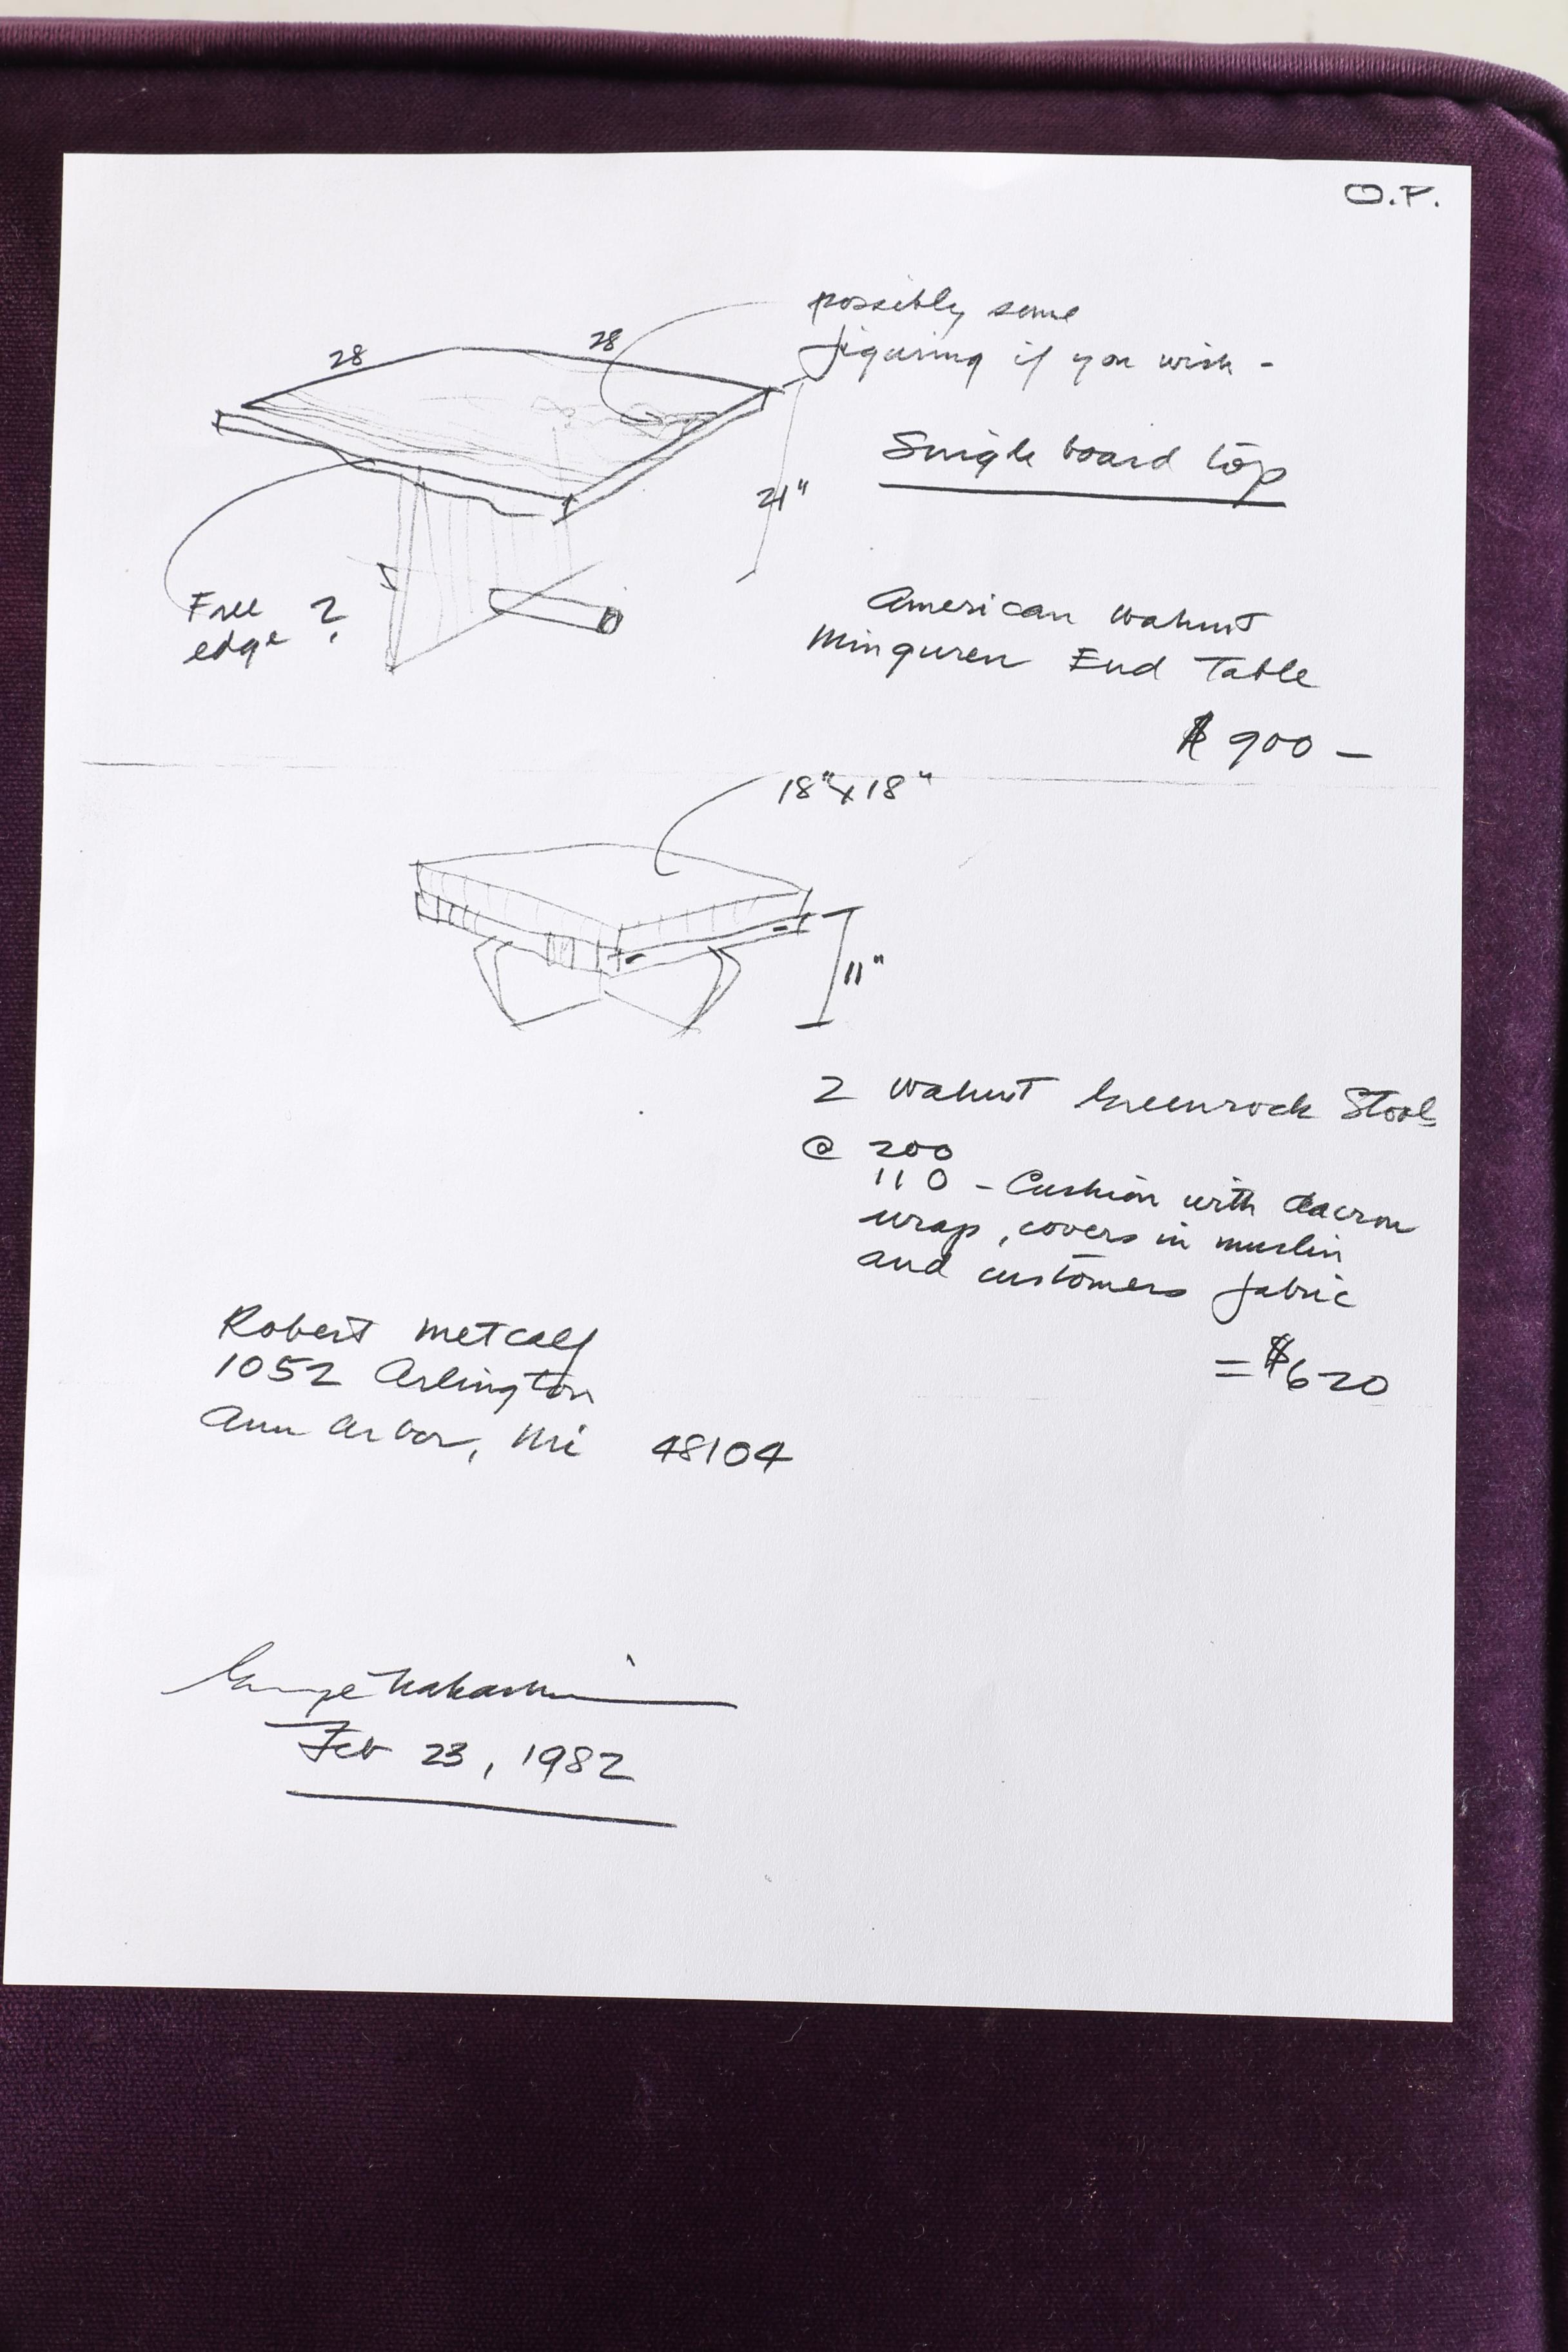 O.P.
possibly some
figuring if you wish -
28
28
Single board top
21"
Free
edge ?
American Walnut
Minguren End Table
$ 900 —
18" x 18"
11"
2 Walnut Greenrock Stools
@ 200
110 - Cushion with dacron
wrap, covers in muslin
and customers fabric
= $620
Robert Metcalf
1052 Arlington
Ann Arbor, Mi 48104
George Nakashima
Feb 23, 1982